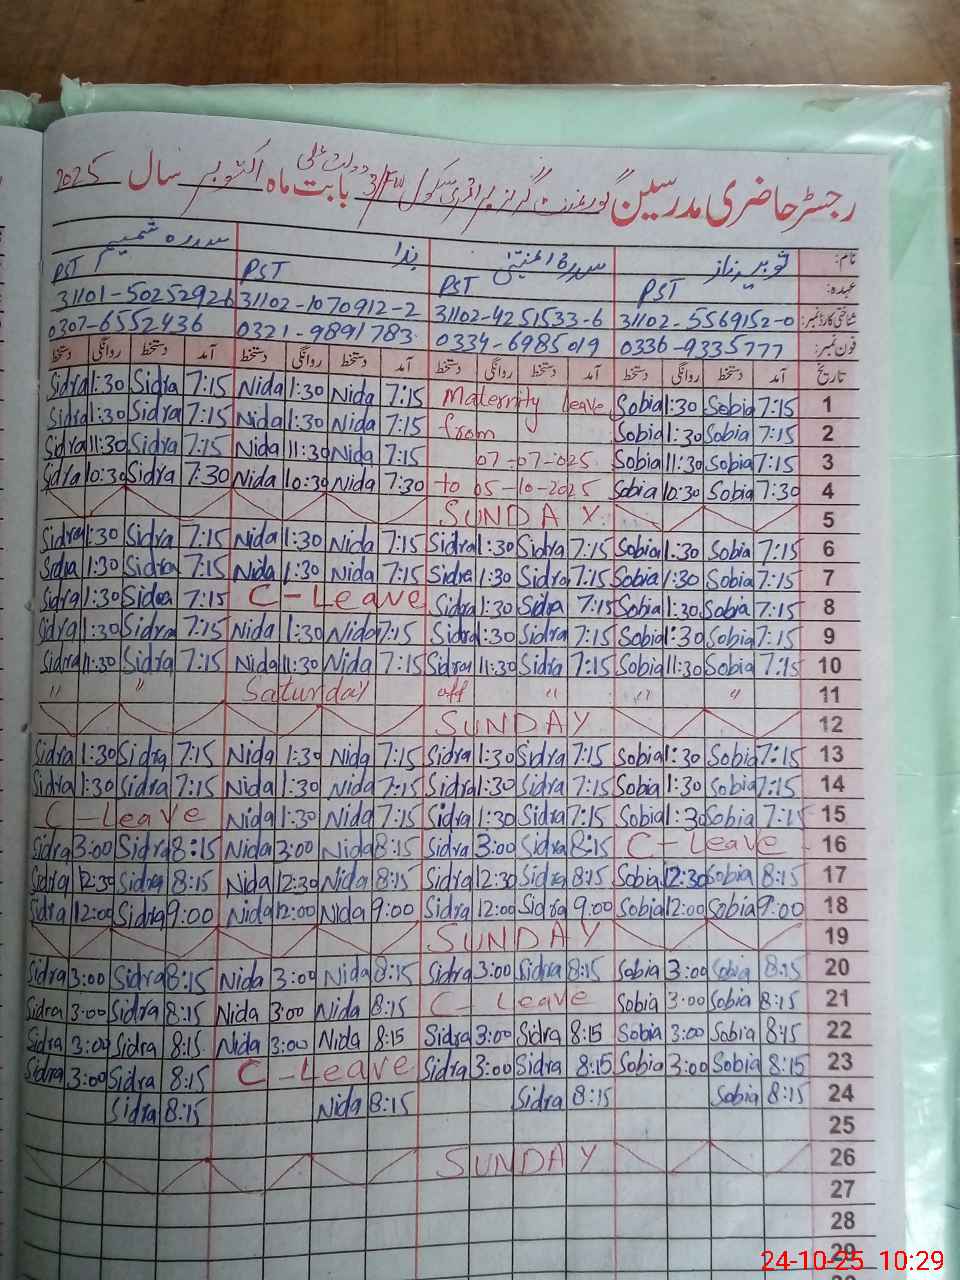 رجسٹر حاضری مدرسین گورنمنٹ گرلز پرائمری سکول 3/FW بابت ماہ اکتوبر سال 2025
نام: ثوبیہ ناز سدرہ ندا سدرہ شمیم
عہدہ: PST PST PST PST
شناختی کارڈ نمبر: 31102-5569152-0 31102-4251533-6 31102-1070912-2 31101-5025292-6
فون نمبر: 0336-9335777 0334-6985019 0321-9891783 0307-6552436
تاریخ آمد دستخط روانگی دستخط آمد دستخط روانگی دستخط آمد دستخط روانگی دستخط آمد دستخط روانگی دستخط
Sidra 1:30 Sidra 7:15 Nida 1:30 Nida 7:15 Maternity leave Sobia 1:30 Sobia 7:15 1
Sidra 1:30 Sidra 7:15 Nida 1:30 Nida 7:15 from Sobia 1:30 Sobia 7:15 2
Sidra 11:30 Sidra 7:15 Nida 11:30 Nida 7:15 07-07-025 Sobia 11:30 Sobia 7:15 3
Sidra 10:30 Sidra 7:30 Nida 10:30 Nida 7:30 to 05-10-2025 Sobia 10:30 Sobia 7:30 4
SUNDAY 5
Sidra 1:30 Sidra 7:15 Nida 1:30 Nida 7:15 Sidra 1:30 Sidra 7:15 Sobia 1:30 Sobia 7:15 6
Sidra 1:30 Sidra 7:15 Nida 1:30 Nida 7:15 Sidra 1:30 Sidra 7:15 Sobia 1:30 Sobia 7:15 7
Sidra 1:30 Sidra 7:15 C-Leave Sidra 1:30 Sidra 7:15 Sobia 1:30 Sobia 7:15 8
Sidra 1:30 Sidra 7:15 Nida 1:30 Nida 7:15 Sidra 1:30 Sidra 7:15 Sobia 1:30 Sobia 7:15 9
Sidra 11:30 Sidra 7:15 Nida 11:30 Nida 7:15 Sidra 11:30 Sidra 7:15 Sobia 11:30 Sobia 7:15 10
" " Saturday off " " " 11
SUNDAY 12
Sidra 1:30 Sidra 7:15 Nida 1:30 Nida 7:15 Sidra 1:30 Sidra 7:15 Sobia 1:30 Sobia 7:15 13
Sidra 1:30 Sidra 7:15 Nida 1:30 Nida 7:15 Sidra 1:30 Sidra 7:15 Sobia 1:30 Sobia 7:15 14
C-Leave Nida 1:30 Nida 7:15 Sidra 1:30 Sidra 7:15 Sobia 1:30 Sobia 7:15 15
Sidra 3:00 Sidra 8:15 Nida 3:00 Nida 8:15 Sidra 3:00 Sidra 8:15 C-Leave 16
Sidra 12:30 Sidra 8:15 Nida 12:30 Nida 8:15 Sidra 12:30 Sidra 8:15 Sobia 12:30 Sobia 8:15 17
Sidra 12:00 Sidra 9:00 Nida 12:00 Nida 9:00 Sidra 12:00 Sidra 9:00 Sobia 12:00 Sobia 9:00 18
SUNDAY 19
Sidra 3:00 Sidra 8:15 Nida 3:00 Nida 8:15 Sidra 3:00 Sidra 8:15 Sobia 3:00 Sobia 8:15 20
Sidra 3:00 Sidra 8:15 Nida 3:00 Nida 8:15 C-Leave Sobia 3:00 Sobia 8:15 21
Sidra 3:00 Sidra 8:15 Nida 3:00 Nida 8:15 Sidra 3:00 Sidra 8:15 Sobia 3:00 Sobia 8:15 22
Sidra 3:00 Sidra 8:15 C-Leave Sidra 3:00 Sidra 8:15 Sobia 3:00 Sobia 8:15 23
Sidra 8:15 Nida 8:15 Sidra 8:15 Sobia 8:15 24
25
SUNDAY 26
27
28
29
24-10-25 10:29